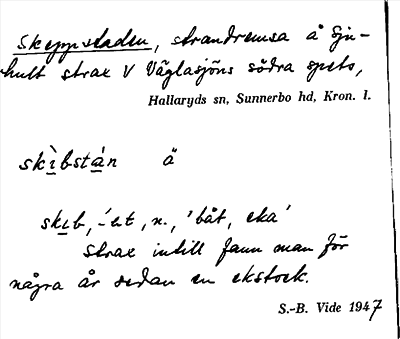 Skeppstaden, strandremsa å Sju-
hult strax V Väglasjöns södra spets,
Hallaryds sn, Sunnerbo hd, Kron. l.
skì̠bstá̠n ä
ski̠b, -et, n., 'båt, eka'
strax intill fann man för
några år sedan en ekstock.
S.-B. Vide 1947